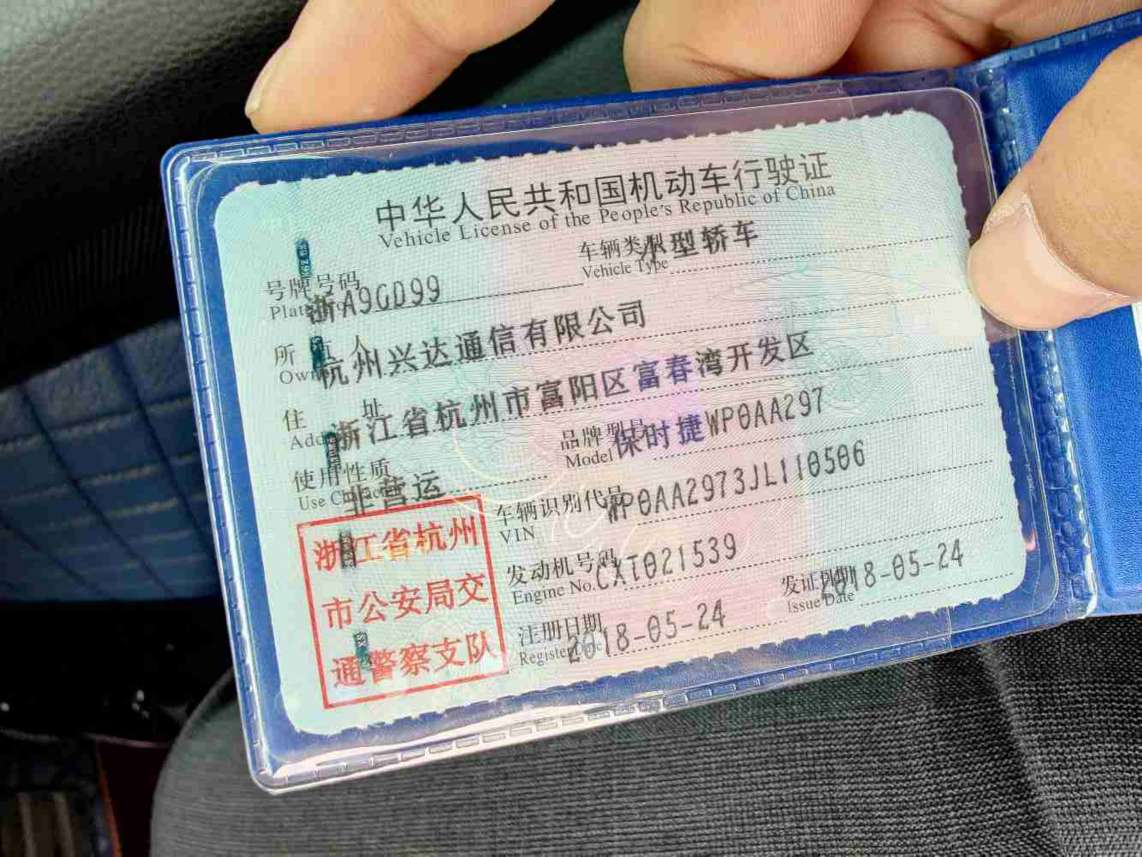 中华人民共和国机动车行驶证
Vehicle License of the People's Republic of China
号牌号码 浙A9GD99 车辆类型 小型轿车
Plate No. Vehicle Type
所有人 杭州兴达通信有限公司
Owner
住址 浙江省杭州市富阳区富春湾开发区
Address
使用性质 非营运 品牌型号 保时捷WP0AA297
Use Character Model
车辆识别代号 WP0AA2973JL110506
VIN
发动机号码 CXT021539
Engine No.
注册日期 2018-05-24 发证日期 2018-05-24
Register Date Issue Date
浙江省杭州
市公安局交
通警察支队